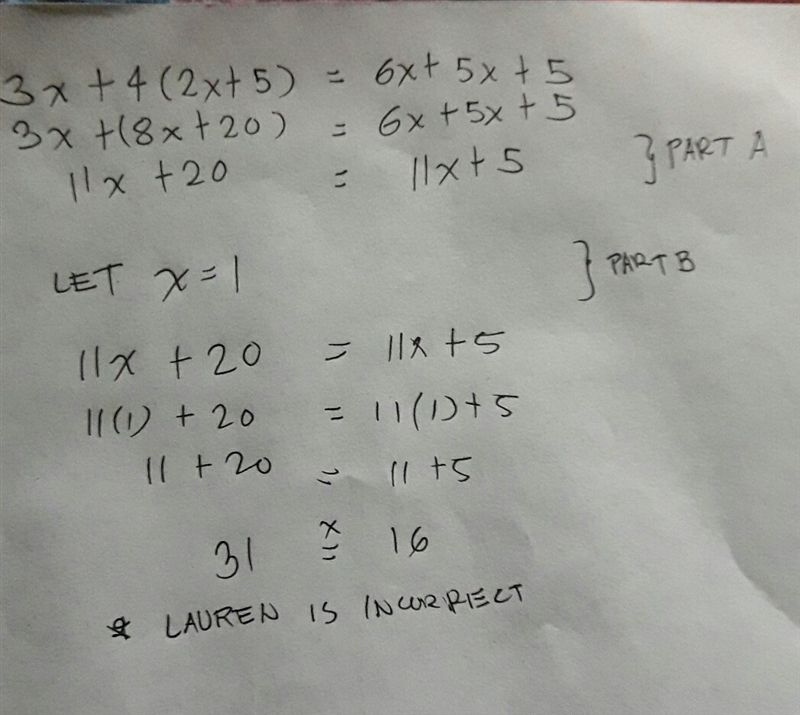 3x + 4(2x+5) = 6x + 5x + 5
3x +(8x+20) = 6x+5x+5
11x +20 = 11x+5 } PART A
LET x=1 } PART B
11x + 20 = 11x +5
11(1) + 20 = 11(1)+5
11 + 20 = 11 +5
31 x= 16
* LAUREN IS INCORRECT